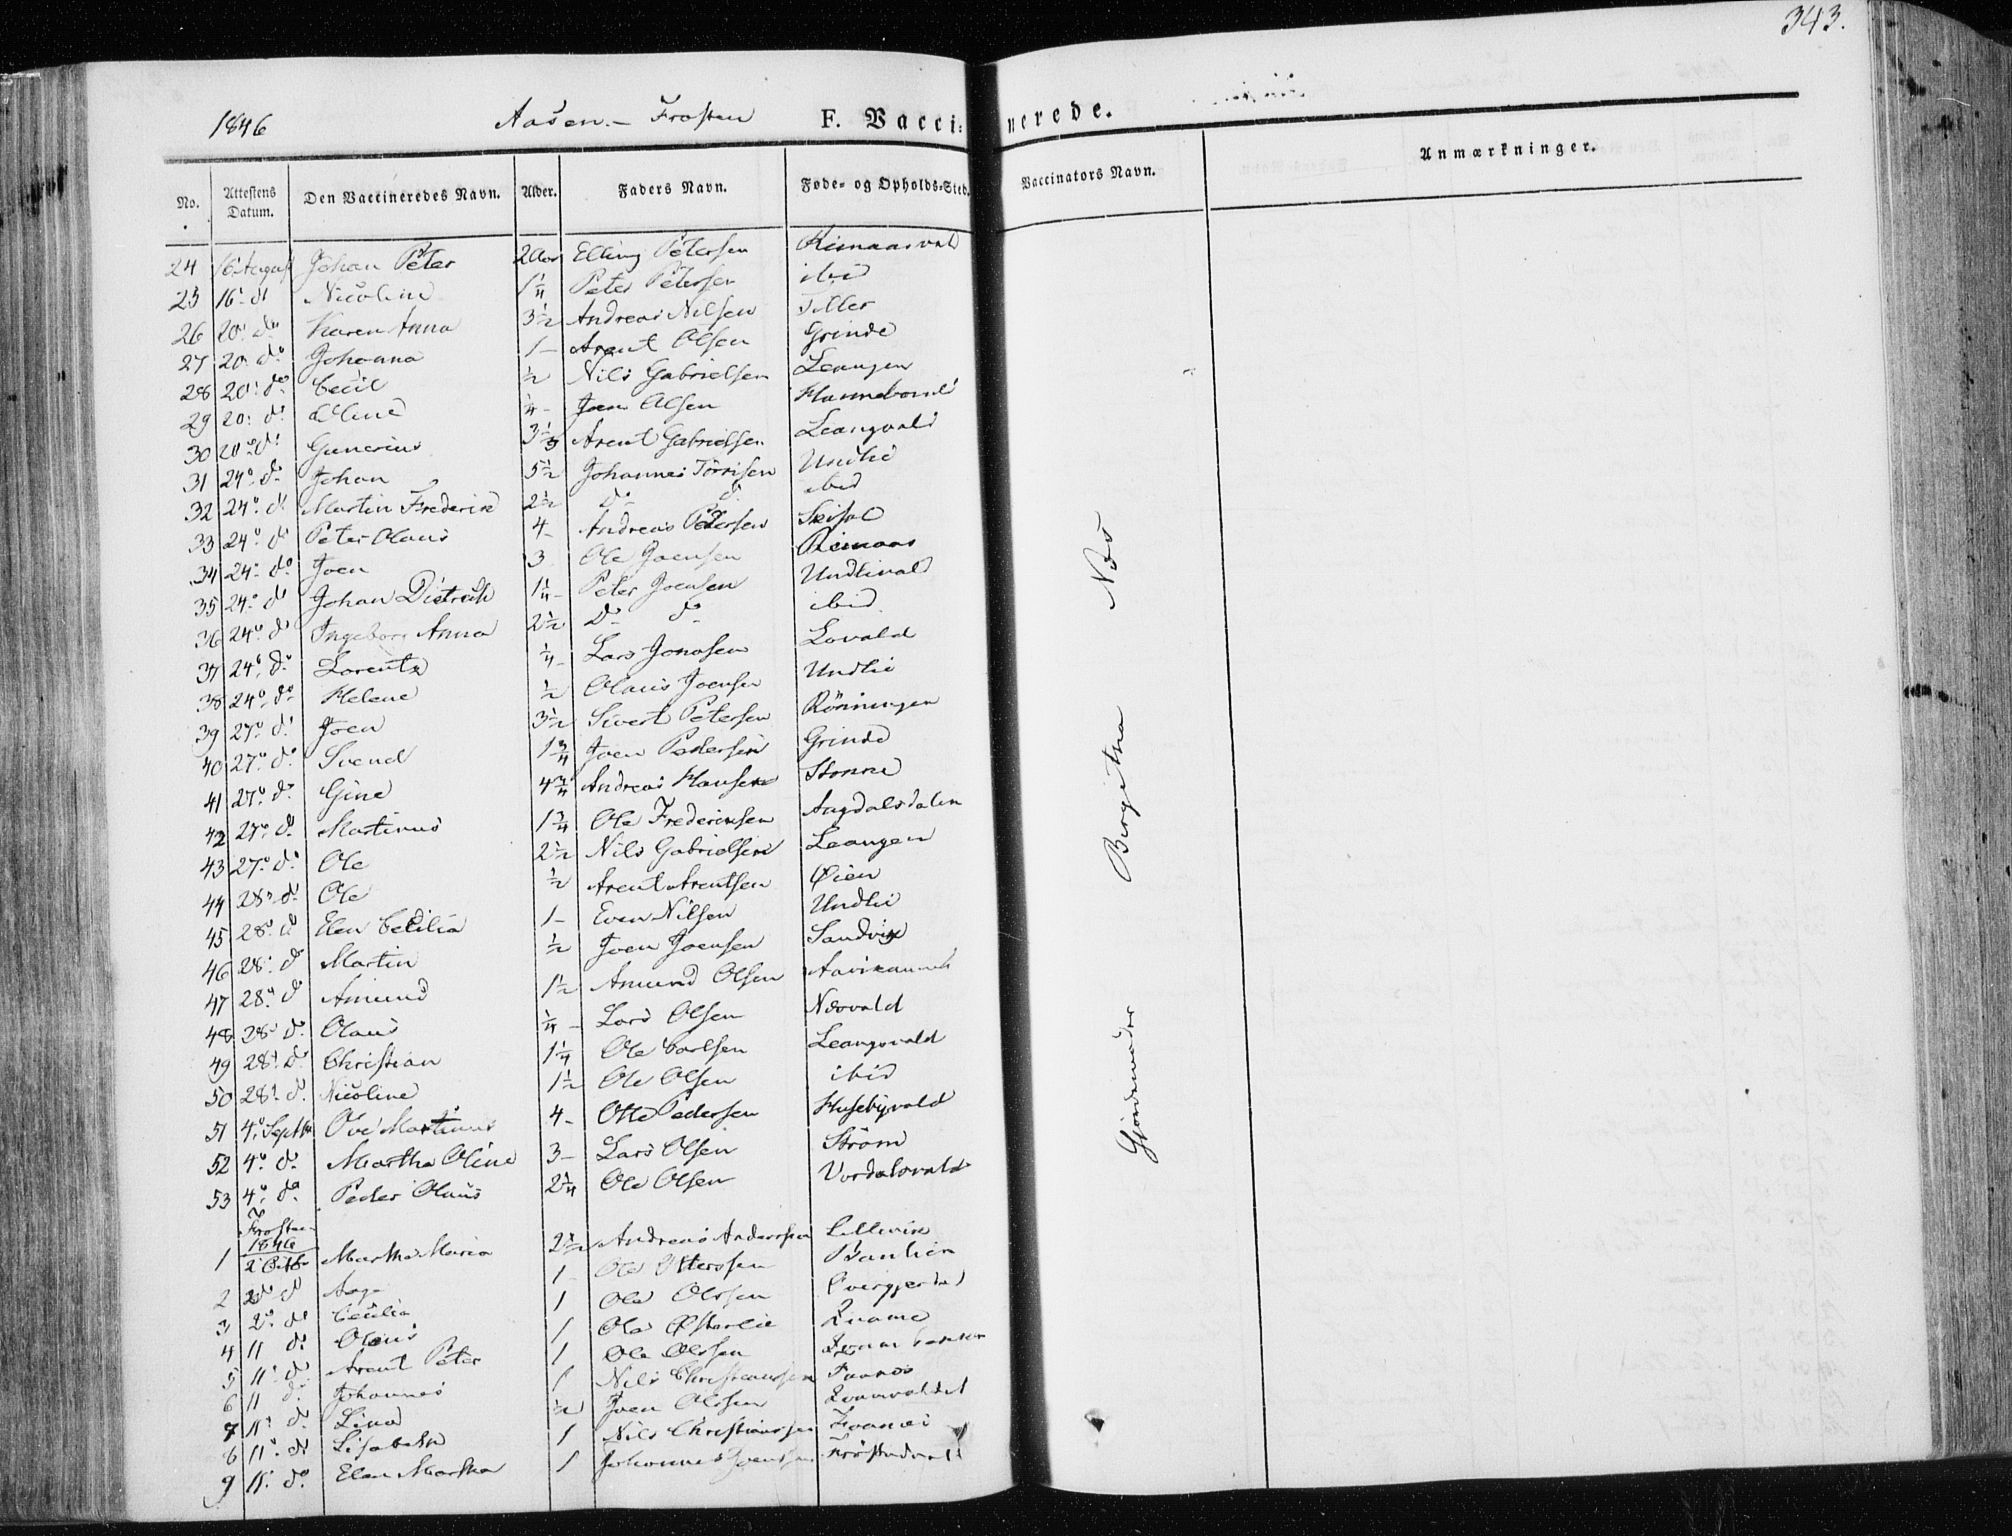 343.
1846 Aasen - Frosten F. Vaccinerede.
No. Attestens Datum. Den Vaccineredes Navn. Alder. Faders Navn. Føde- og Opholds-Sted. Vaccinators Navn. Anmærkninger.
24 16 August Johan Peter 2 Aar Elling Petersen
25 16 do Nicoline 1 1/4 Peter Petersen ibid
26 20 do Karen Anna 3 1/2 Andreas Nilsen Tiller
27 20 do Johanna 1 - Arent Olsen Grinde
28 20 do Cecil 1/2 Nils Gabrielsen Leangen
29 20 do Oline 1/4 - Joen Olsen
30 20 do Gunerius 3 1/3 Arent Gabrielsen Leangvald
31 24 do Johan 5 1/2 Johannes Törrisen Undlie
32 24 do Martin Frederik 2 1/2 do do ibid
33 24 do Peter Olaus 4 - Andreas Petersen
34 24 do Joen 3 Ole Joensen Rimaas
35 24 do Johan Dietrich 1 1/4 - Peter Joensen Undlivald
36 24 do Ingeborg Anna 2 1/2 Do do ibid
37 24 do Lorents 1/4 - Lars Jonasen Lovald
38 24 do Helene 1/2 Olaus Joensen Undlie
39 27 do Joen 3 1/2 Sivert Petersen Rönningen
40 27 do Svend 1 3/4 Joen Pedersen Grinde
41 27 do Gine 4 3/4 Andreas Hansen Stonne
42 27 do Martinus 1 3/4 Ole Frederiksen Angdalsdalen
43 27 do Ole 2 1/2 Nils Gabrielsen Leangen
44 28 do Ole 1/2 Arent Arentsen Øien
45 28 do Elen Cecilia 1 - Even Nilsen Undlie
46 28 do Martin 1/2 Joen Joensen Sandvig
47 28 do Amund 1 1/2 Amund Olsen
48 28 do Olaus 1/4 - Lars Olsen Nesvald
49 28 do Christian 1 1/4 Ole Carlsen Leangsvald
50 28 do Nicoline 1 1/2 Ole Olsen ibid
51 4 Septbr Ove Martinus 4 - Otte Pedersen Husebyvald
52 4 do Martha Oline 3 - Lars Olsen Ström
53 4 do Peder Olaus 2 1/4 Ole Olsen Vordalsvald
Frosten
1846
1 2 Octbr Martha Maria 2 1/2 Andreas Anderssen Lillevik
2 2 do Aage 1 - Ole Otterssen
3 2 do Cecilia 1 Ole Olssen
4 11 do Olaus 1 Ole Østerlie
5 11 do Arent Peter 1 Ole Olssen
6 11 do Johannes 1 Nils Christianssen
7 11 do Lina 1/2 Joen Olssen
8 11 do Lisabeth 1 Nils Christianssen
9 11 do Elen Martha 1 Johannes Joenssen
Gjordemoder Birgitha Næs